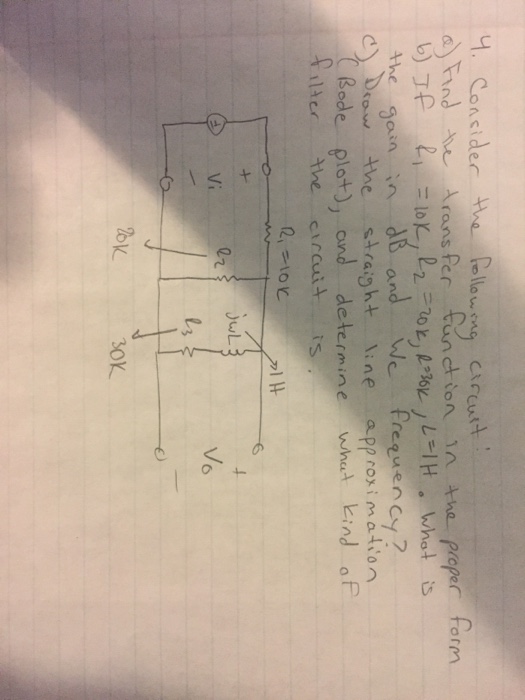 4. Consider the following circuit:
a) Find the transfer function in the proper form
b) If R1 = 10K, R2 = 20K, R=30K, L=1H. What is
the gain in dB and Wc frequency?
c) Draw the straight line approximation
(Bode plot), and determine what kind of
filter the circuit is.
R1=10K
1H
+
Vi
−
R2
jwL
R3
+
Vo
−
20K
30K